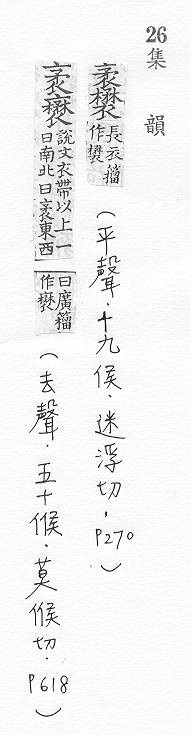 26 集韻
袤 長衣籀作 (平聲.十九侯.迷浮切.P270)
袤 說文衣帶以上一曰南北曰袤東西曰廣籀作 (去聲.五十候.莫候切.P618)